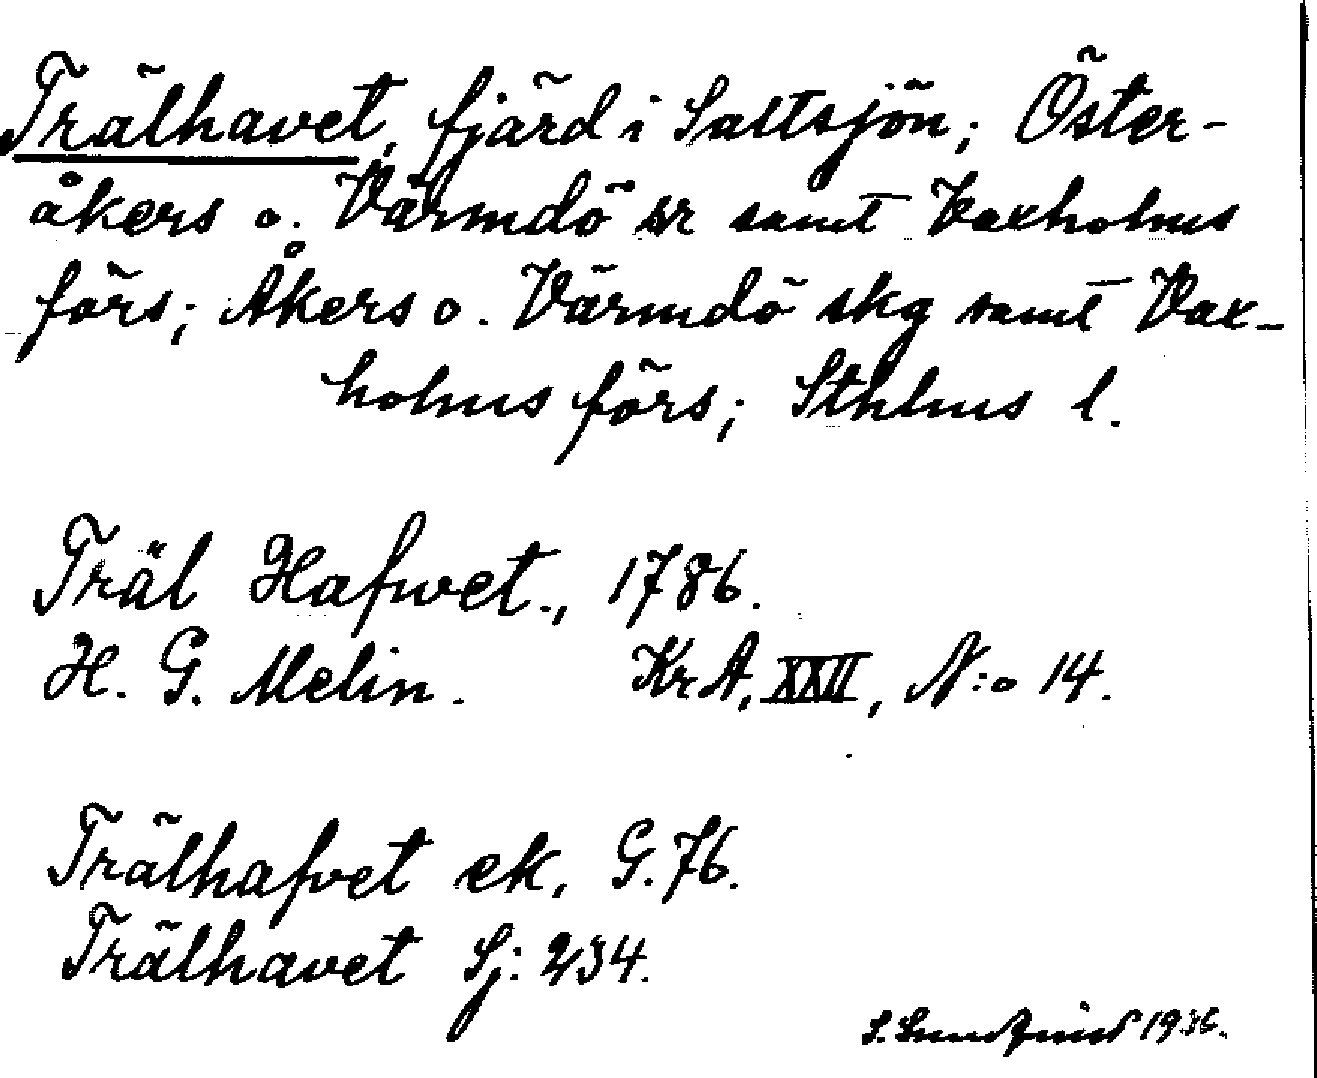 Trälhavet, fjärd i Saltsjön; Öster-
åkers o. Värmdö sr samt Vaxholms
förs; Åkers o. Värmdö skg samt Vax-
holms förs; Sthlms l.
Träl Hafwet., 1786.
H. G. Melin. KrA, XXII, N:o 14.
Trälhafvet ek. G. 76.
Trälhavet Sj: 234.
S. 1936.